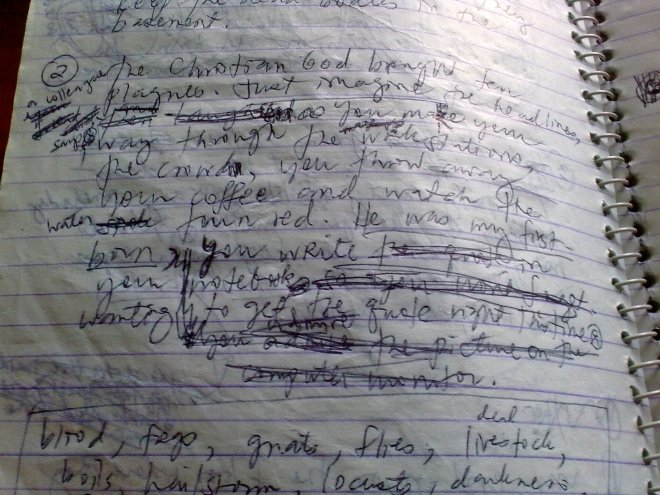 keep the dead bodies in the
basement.
② The Christian God brought ten
a colleague
plagues. Just imagine the headlines,
says as you make your
way through the workstations,
the crowds, you throw away
your coffee and watch the
water turn red. He was my first
born, you write in
your notebook
wanting to get the quote right this time
you admire the picture on the
computer monitor.
dead
blood, frogs, gnats, flies, livestock,
boils, hailstorm, locusts, darkness